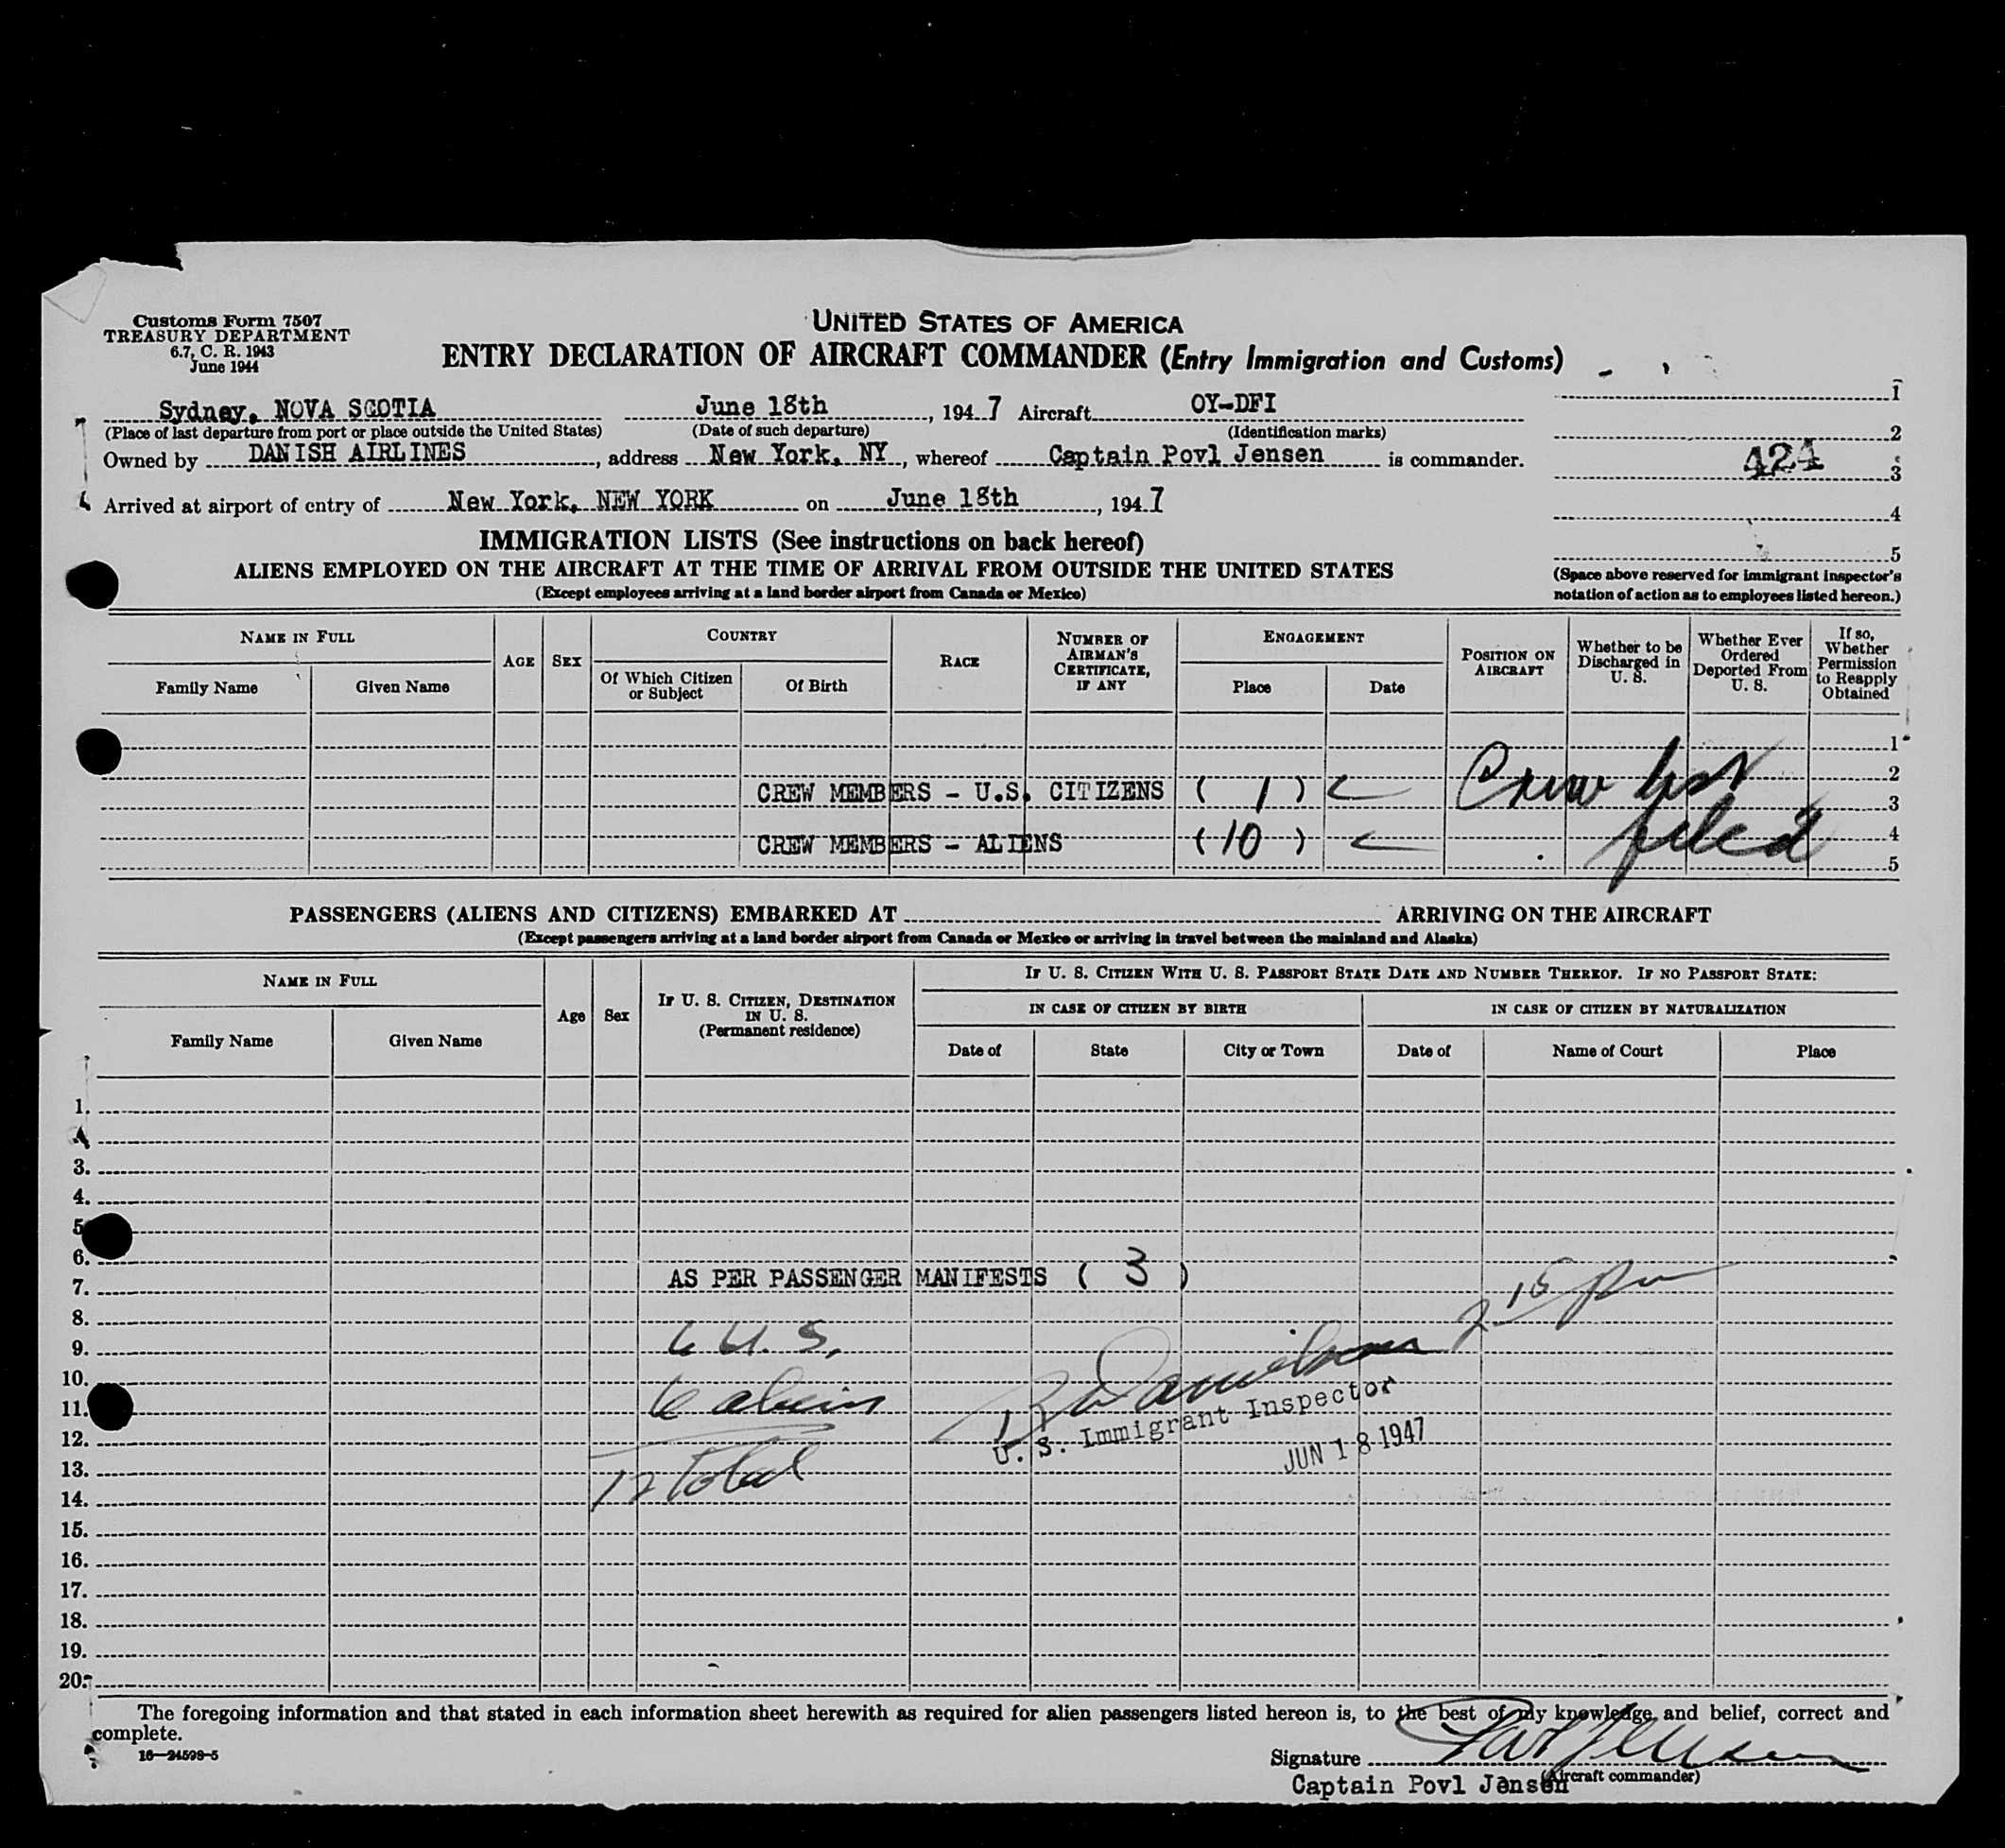 Customs Form 7507
TREASURY DEPARTMENT
6.7, C. R. 1943
June 1944
UNITED STATES OF AMERICA
ENTRY DECLARATION OF AIRCRAFT COMMANDER (Entry Immigration and Customs)
Sydney, NOVA SCOTIA June 18th, 1947 Aircraft OY-DFI
(Place of last departure from port or place outside the United States) (Date of such departure) (Identification marks)
Owned by DANISH AIRLINES, address New York, NY, whereof Captain Povl Jensen is commander.
Arrived at airport of entry of New York, NEW YORK on June 18th, 1947
1
2
424
3
4
5
(Space above reserved for immigrant inspector's
notation of action as to employees listed hereon.)
IMMIGRATION LISTS (See instructions on back hereof)
ALIENS EMPLOYED ON THE AIRCRAFT AT THE TIME OF ARRIVAL FROM OUTSIDE THE UNITED STATES
(Except employees arriving at a land border airport from Canada or Mexico)
NAME IN FULL
Family Name
Given Name
AGE
SEX
COUNTRY
Of Which Citizen
or Subject
Of Birth
RACE
NUMBER OF
AIRMAN'S
CERTIFICATE,
IF ANY
ENGAGEMENT
Place
Date
POSITION ON
AIRCRAFT
Whether to be
Discharged in
U. S.
Whether Ever
Ordered
Deported From
U. S.
If so,
Whether
Permission
to Reapply
Obtained
1
2
CREW MEMBERS - U.S. CITIZENS ( 1 ) Crew list
3
filed
4
CREW MEMBERS - ALIENS (10 )
5
PASSENGERS (ALIENS AND CITIZENS) EMBARKED AT ARRIVING ON THE AIRCRAFT
(Except passengers arriving at a land border airport from Canada or Mexico or arriving in travel between the mainland and Alaska)
NAME IN FULL
Family Name
Given Name
Age
Sex
IF U. S. CITIZEN, DESTINATION
IN U. S.
(Permanent residence)
IF U. S. CITIZEN WITH U. S. PASSPORT STATE DATE AND NUMBER THEREOF. IF NO PASSPORT STATE:
IN CASE OF CITIZEN BY BIRTH
IN CASE OF CITIZEN BY NATURALIZATION
Date of
State
City or Town
Date of
Name of Court
Place
1.
3.
4.
5
6.
AS PER PASSENGER MANIFESTS ( 3 )
7.
2 15 pm
8.
6 U. S.
9.
10.
6 aliens
11.
U. S. Immigrant Inspector
12.
JUN 18 1947
12 total
13.
14.
15.
16.
17.
18.
19.
20.
The foregoing information and that stated in each information sheet herewith as required for alien passengers listed hereon is, to the best of my knowledge and belief, correct and
complete.
16—24598-5
Signature Povl Jensen
(Aircraft commander)
Captain Povl Jensen